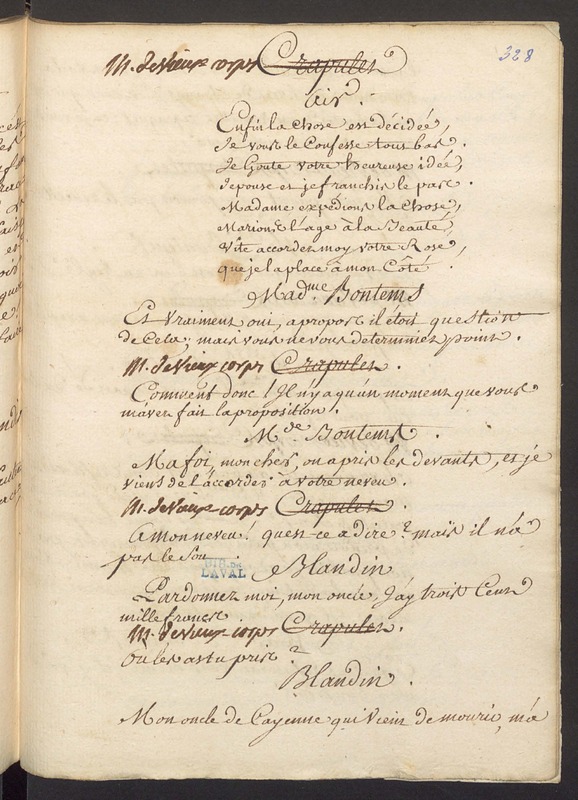 328
M. de Vieux corps Crapulet
air.
Enfin la Chose est décidée,
Je vous le Confesse tous bas.
Je Goute votre heureuse idée,
Jepouse et je franchis le pas.
Madame expédions la Chose,
Marions l'age à la Beauté,
Vite accordez moy votre Rose,
que je la place à mon Côté.
Mad.me Bontems
Et Vraiment oui, apropos il étoit question
de Cela; mais vous ne vous determiniez point.
M. de Vieux corps Crapulet.
Comment donc! Il n'ya qu'un moment que vous
m'avez fait la proposition.
M.de Bontems.
Ma foi, mon cher, on a pris les devants, et je
viens de l'accorder à votre neveu.
M. de Vieux corps Crapulet.
A mon neveu! quest-ce a dire? mais il n'a
pas le Sou.
BIB. DE
LAVAL
Blandin
Pardonnez moi, mon oncle, J'ay trois Cens
mille francs.
M. de Vieux corps Crapulet.
Où les as tu pris?
Blandin.
Mon oncle de Cayenne qui Vient de mourir, m'a